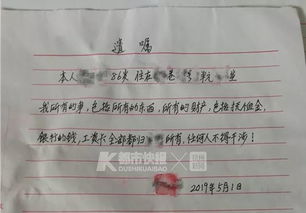 遗嘱
本人 86岁 住在 巷 号乾
我所有的 ,包括所有的东西,所有的财产,包括抚恤金,
银行的钱,工资卡全部都归 所有,任何人不得干涉!
K都市快报
DUSHIKUAIBAO
2019年5月1日